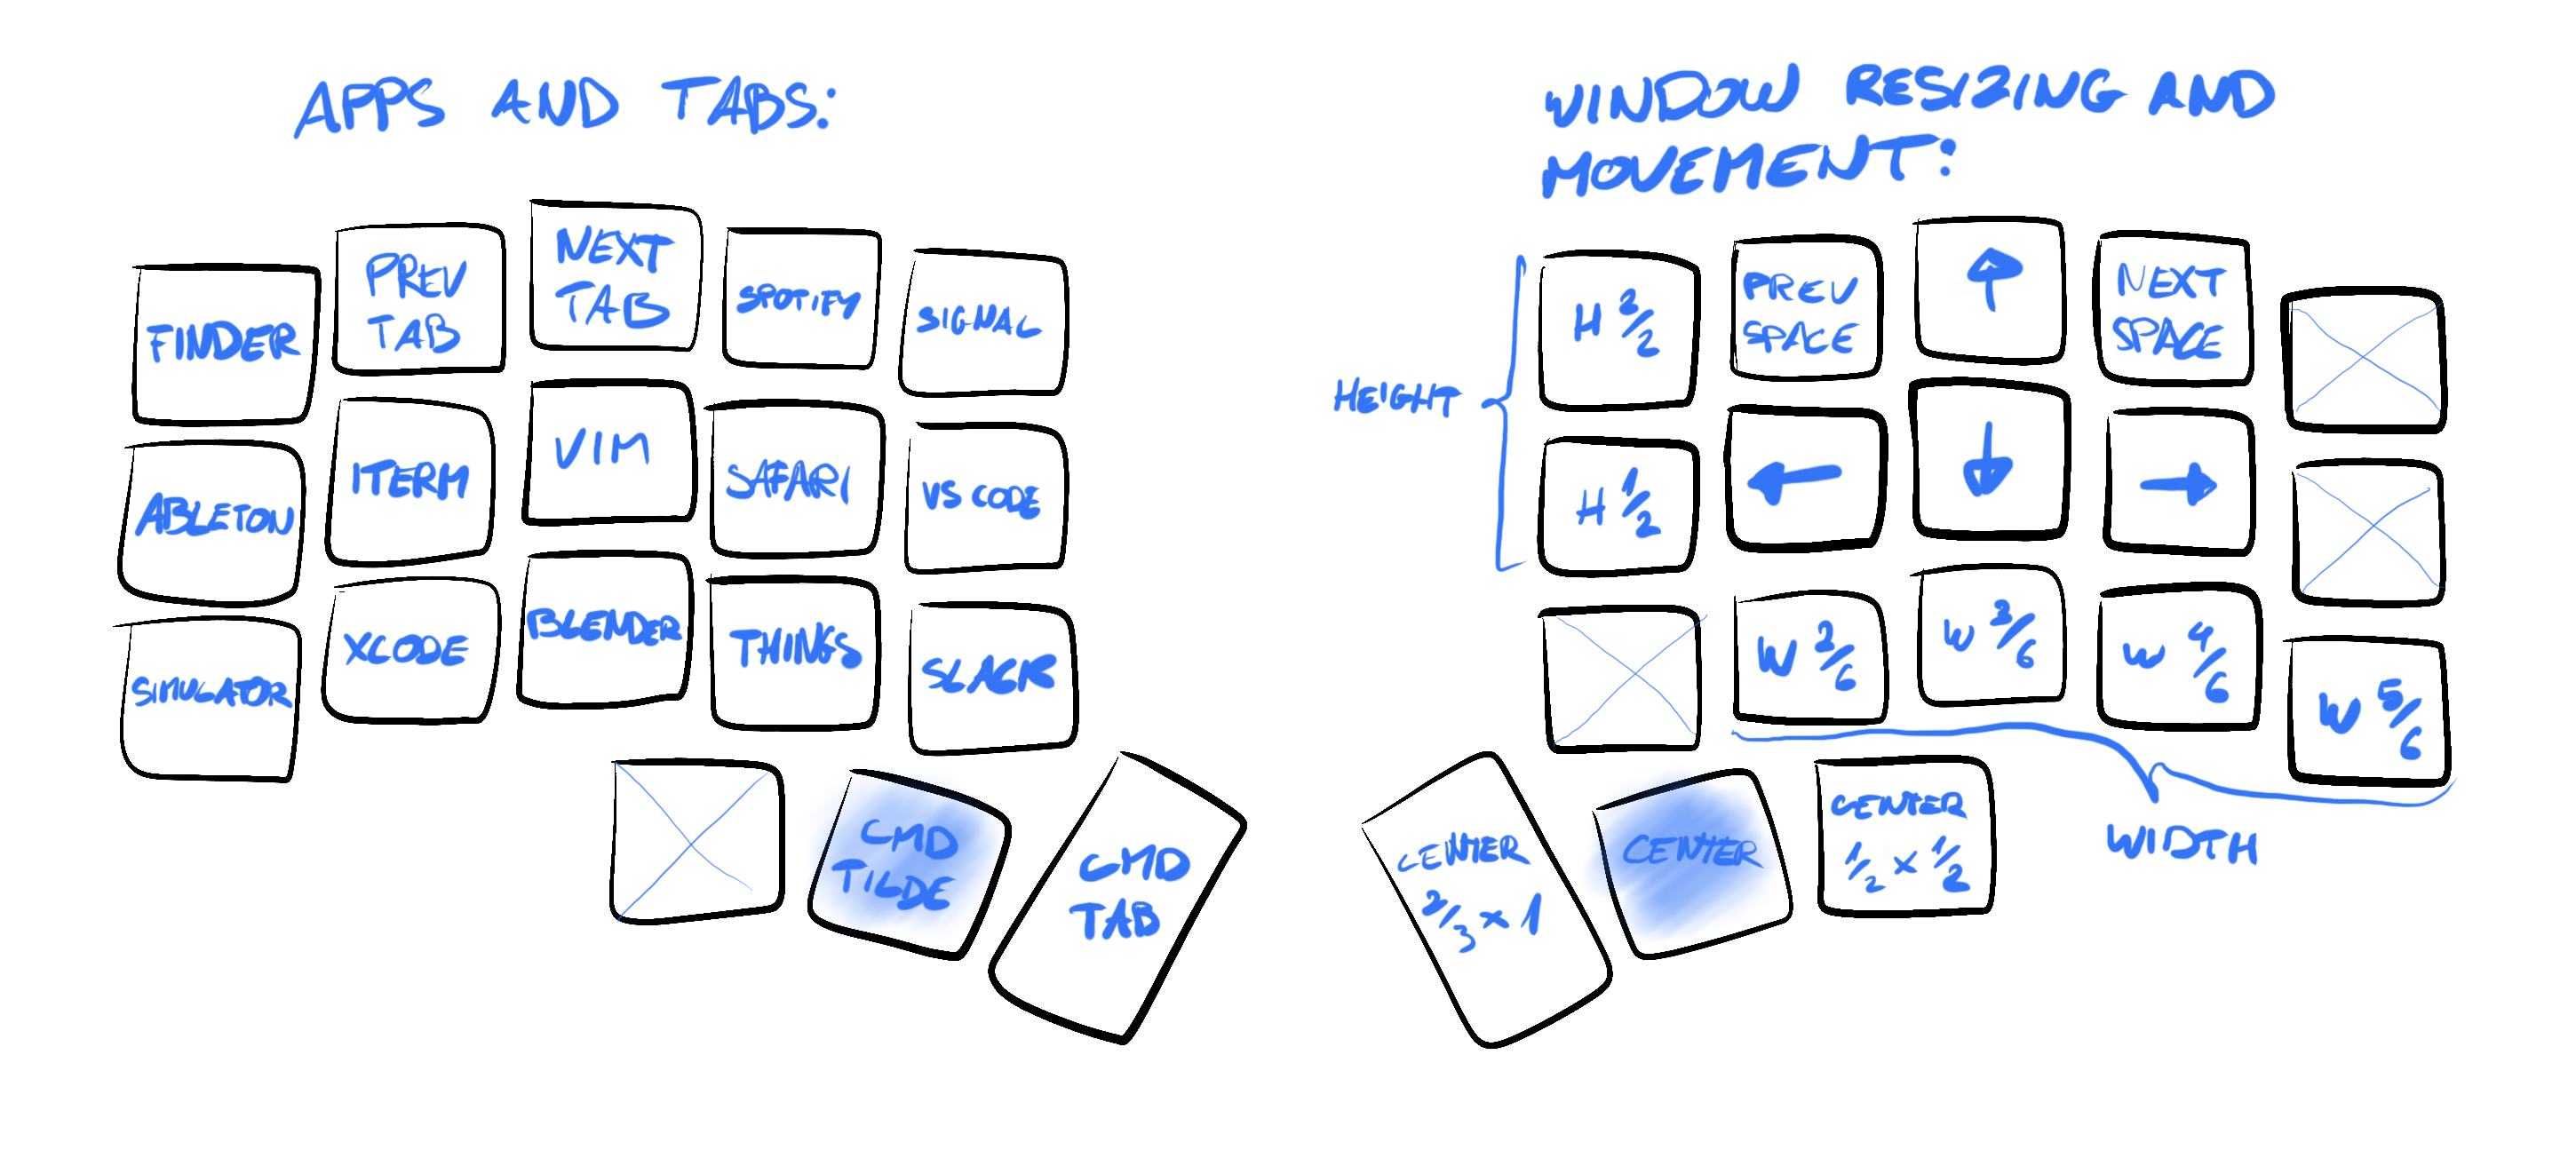 APPS AND TABS:
FINDER
PREV
TAB
NEXT
TAB
SPOTIFY
SIGNAL
ABLETON
ITERM
VIM
SAFARI
VS CODE
SIMULATOR
XCODE
BLENDER
THINGS
SLACK
CMD
TILDE
CMD
TAB
WINDOW RESIZING AND
MOVEMENT:
HEIGHT
H 2/2
PREV
SPACE
↑
NEXT
SPACE
H 1/2
←
↓
→
W 2/6
W 3/6
W 4/6
W 5/6
WIDTH
CENTER
2/3 × 1
CENTER
CENTER
1/2 × 1/2